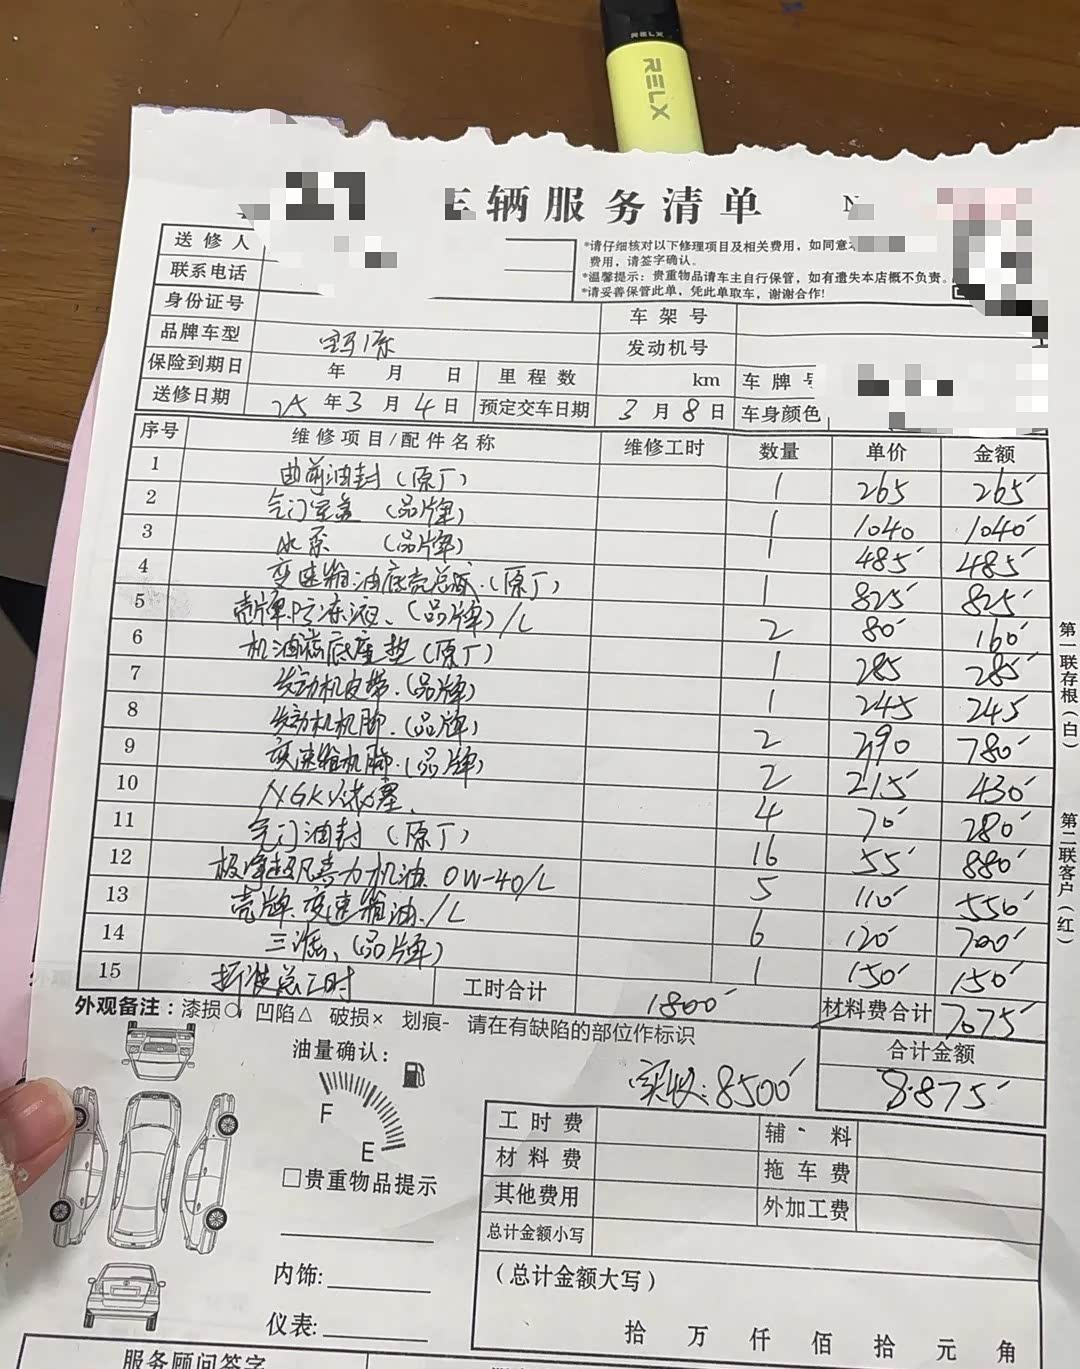 RELX
RELX
辆服务清单
送修人
*请仔细核对以下修理项目及相关费用，如同意
费用，请签字确认。
联系电话
*温馨提示：贵重物品请车主自行保管，如有遗失本店概不负责。
*请妥善保管此单，凭此单取车，谢谢合作!
身份证号
车架号
品牌车型 宝马1系
发动机号
保险到期日 年 月 日 里程数 km 车牌号
送修日期 25年3月4日 预定交车日期 3月8日 车身颜色
序号 维修项目/配件名称 维修工时 数量 单价 金额
1 曲前油封（原厂） 1 265 265
2 气门室盖（品牌） 1 1040 1040
3 水泵（品牌） 1 485 485
4 变速箱油底壳总成.（原厂） 1 825 825
5 壳牌防冻液、（品牌）/L 2 80 160
6 机油滤底座垫（原厂） 1 285 285
7 发动机皮带.（品牌） 1 245 245
8 发动机机脚.（品牌） 2 390 780
9 变速箱机脚.（品牌） 2 215 430
10 NGK火花塞. 4 70 280
11 气门油封（原厂） 16 55 880
12 极净超凡喜力机油. 0W-40/L 5 110 550
13 壳牌.变速箱油./L 6 120 700
14 三滤、（品牌） 1 150 150
15 拆准总工时 工时合计 1800 材料费合计 7075
外观备注：漆损○ 凹陷△ 破损× 划痕- 请在有缺陷的部位作标识
合计金额
8875
实收：8500
油量确认：
F
E
□贵重物品提示
内饰:
仪表:
工时费 辅料
材料费 拖车费
其他费用 外加工费
总计金额小写
（总计金额大写）
拾 万 仟 佰 拾 元 角
服务顾问签字
第一联存根（白）
第二联客户（红）